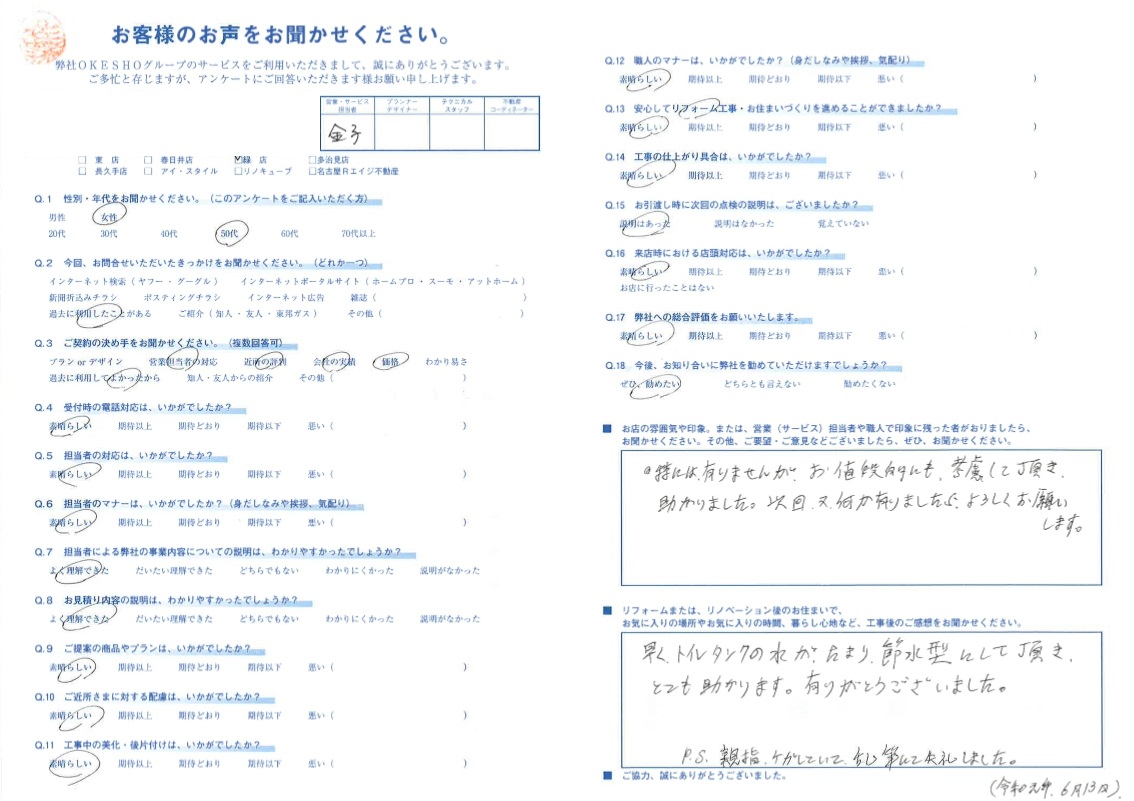 お客様のお声をお聞かせください。
弊社OKESHOグループのサービスをご利用いただきまして、誠にありがとうございます。
ご多忙と存じますが、アンケートにご回答いただきます様お願い申し上げます。
営業・サービス担当者 プランナーデザイナー テクニカルスタッフ 不動産コーディネーター
金子
□ 東 店 □ 春日井店 ☑緑 店 □多治見店
□ 長久手店 □ アイ・スタイル □リノキューブ □名古屋Rエイジ不動産
Q.1 性別・年代をお聞かせください。(このアンケートをご記入いただく方)
男性 女性
20代 30代 40代 50代 60代 70代以上
Q.2 今回、お問合せいただいたきっかけをお聞かせください。(どれか一つ)
インターネット検索(ヤフー・グーグル) インターネットポータルサイト(ホームプロ・スーモ・アットホーム)
新聞折込みチラシ ポスティングチラシ インターネット広告 雑誌( )
過去に利用したことがある ご紹介(知人・友人・東邦ガス) その他( )
Q.3 ご契約の決め手をお聞かせください。(複数回答可)
プランorデザイン 営業担当者の対応 近所の評判 会社の実績 価格 わかり易さ
過去に利用してよかったから 知人・友人からの紹介 その他( )
Q.4 受付時の電話対応は、いかがでしたか?
素晴らしい 期待以上 期待どおり 期待以下 悪い( )
Q.5 担当者の対応は、いかがでしたか?
素晴らしい 期待以上 期待どおり 期待以下 悪い( )
Q.6 担当者のマナーは、いかがでしたか?(身だしなみや挨拶、気配り)
素晴らしい 期待以上 期待どおり 期待以下 悪い( )
Q.7 担当者による弊社の事業内容についての説明は、わかりやすかったでしょうか?
よく理解できた だいたい理解できた どちらでもない わかりにくかった 説明がなかった
Q.8 お見積り内容の説明は、わかりやすかったでしょうか?
よく理解できた だいたい理解できた どちらでもない わかりにくかった 説明がなかった
Q.9 ご提案の商品やプランは、いかがでしたか?
素晴らしい 期待以上 期待どおり 期待以下 悪い( )
Q.10 ご近所さまに対する配慮は、いかがでしたか?
素晴らしい 期待以上 期待どおり 期待以下 悪い( )
Q.11 工事中の美化・後片付けは、いかがでしたか?
素晴らしい 期待以上 期待どおり 期待以下 悪い( )
Q.12 職人のマナーは、いかがでしたか?(身だしなみや挨拶、気配り)
素晴らしい 期待以上 期待どおり 期待以下 悪い( )
Q.13 安心してリフォーム工事・お住まいづくりを進めることができましたか?
素晴らしい 期待以上 期待どおり 期待以下 悪い( )
Q.14 工事の仕上がり具合は、いかがでしたか?
素晴らしい 期待以上 期待どおり 期待以下 悪い( )
Q.15 お引渡し時に次回の点検の説明は、ございましたか?
説明はあった 説明はなかった 覚えていない
Q.16 来店時における店頭対応は、いかがでしたか?
素晴らしい 期待以上 期待どおり 期待以下 悪い( )
お店に行ったことはない
Q.17 弊社への総合評価をお願いいたします。
素晴らしい 期待以上 期待どおり 期待以下 悪い( )
Q.18 今後、お知り合いに弊社を勧めていただけますでしょうか?
ぜひ、勧めたい どちらとも言えない 勧めたくない
■ お店の雰囲気や印象。または、営業(サービス)担当者や職人で印象に残った者がおりましたら、
お聞かせください。その他、ご要望・ご意見などございましたら、ぜひ、お聞かせください。
特には有りませんが、お値段的にも、考慮して頂き、
助かりました。次回又何か有りましたら、よろしくお願い
します。
■ リフォームまたは、リノベーション後のお住まいで、
お気に入りの場所やお気に入りの時間、暮らし心地など、工事後のご感想をお聞かせください。
早く、トイレタンクの水が、たまり、節水型にして頂き、
とても助かります。有りがとうございました。
P.S. 親指、ケガしていて、乱筆にて失礼しました。
■ ご協力、誠にありがとうございました。
(令和元年、6月13日)